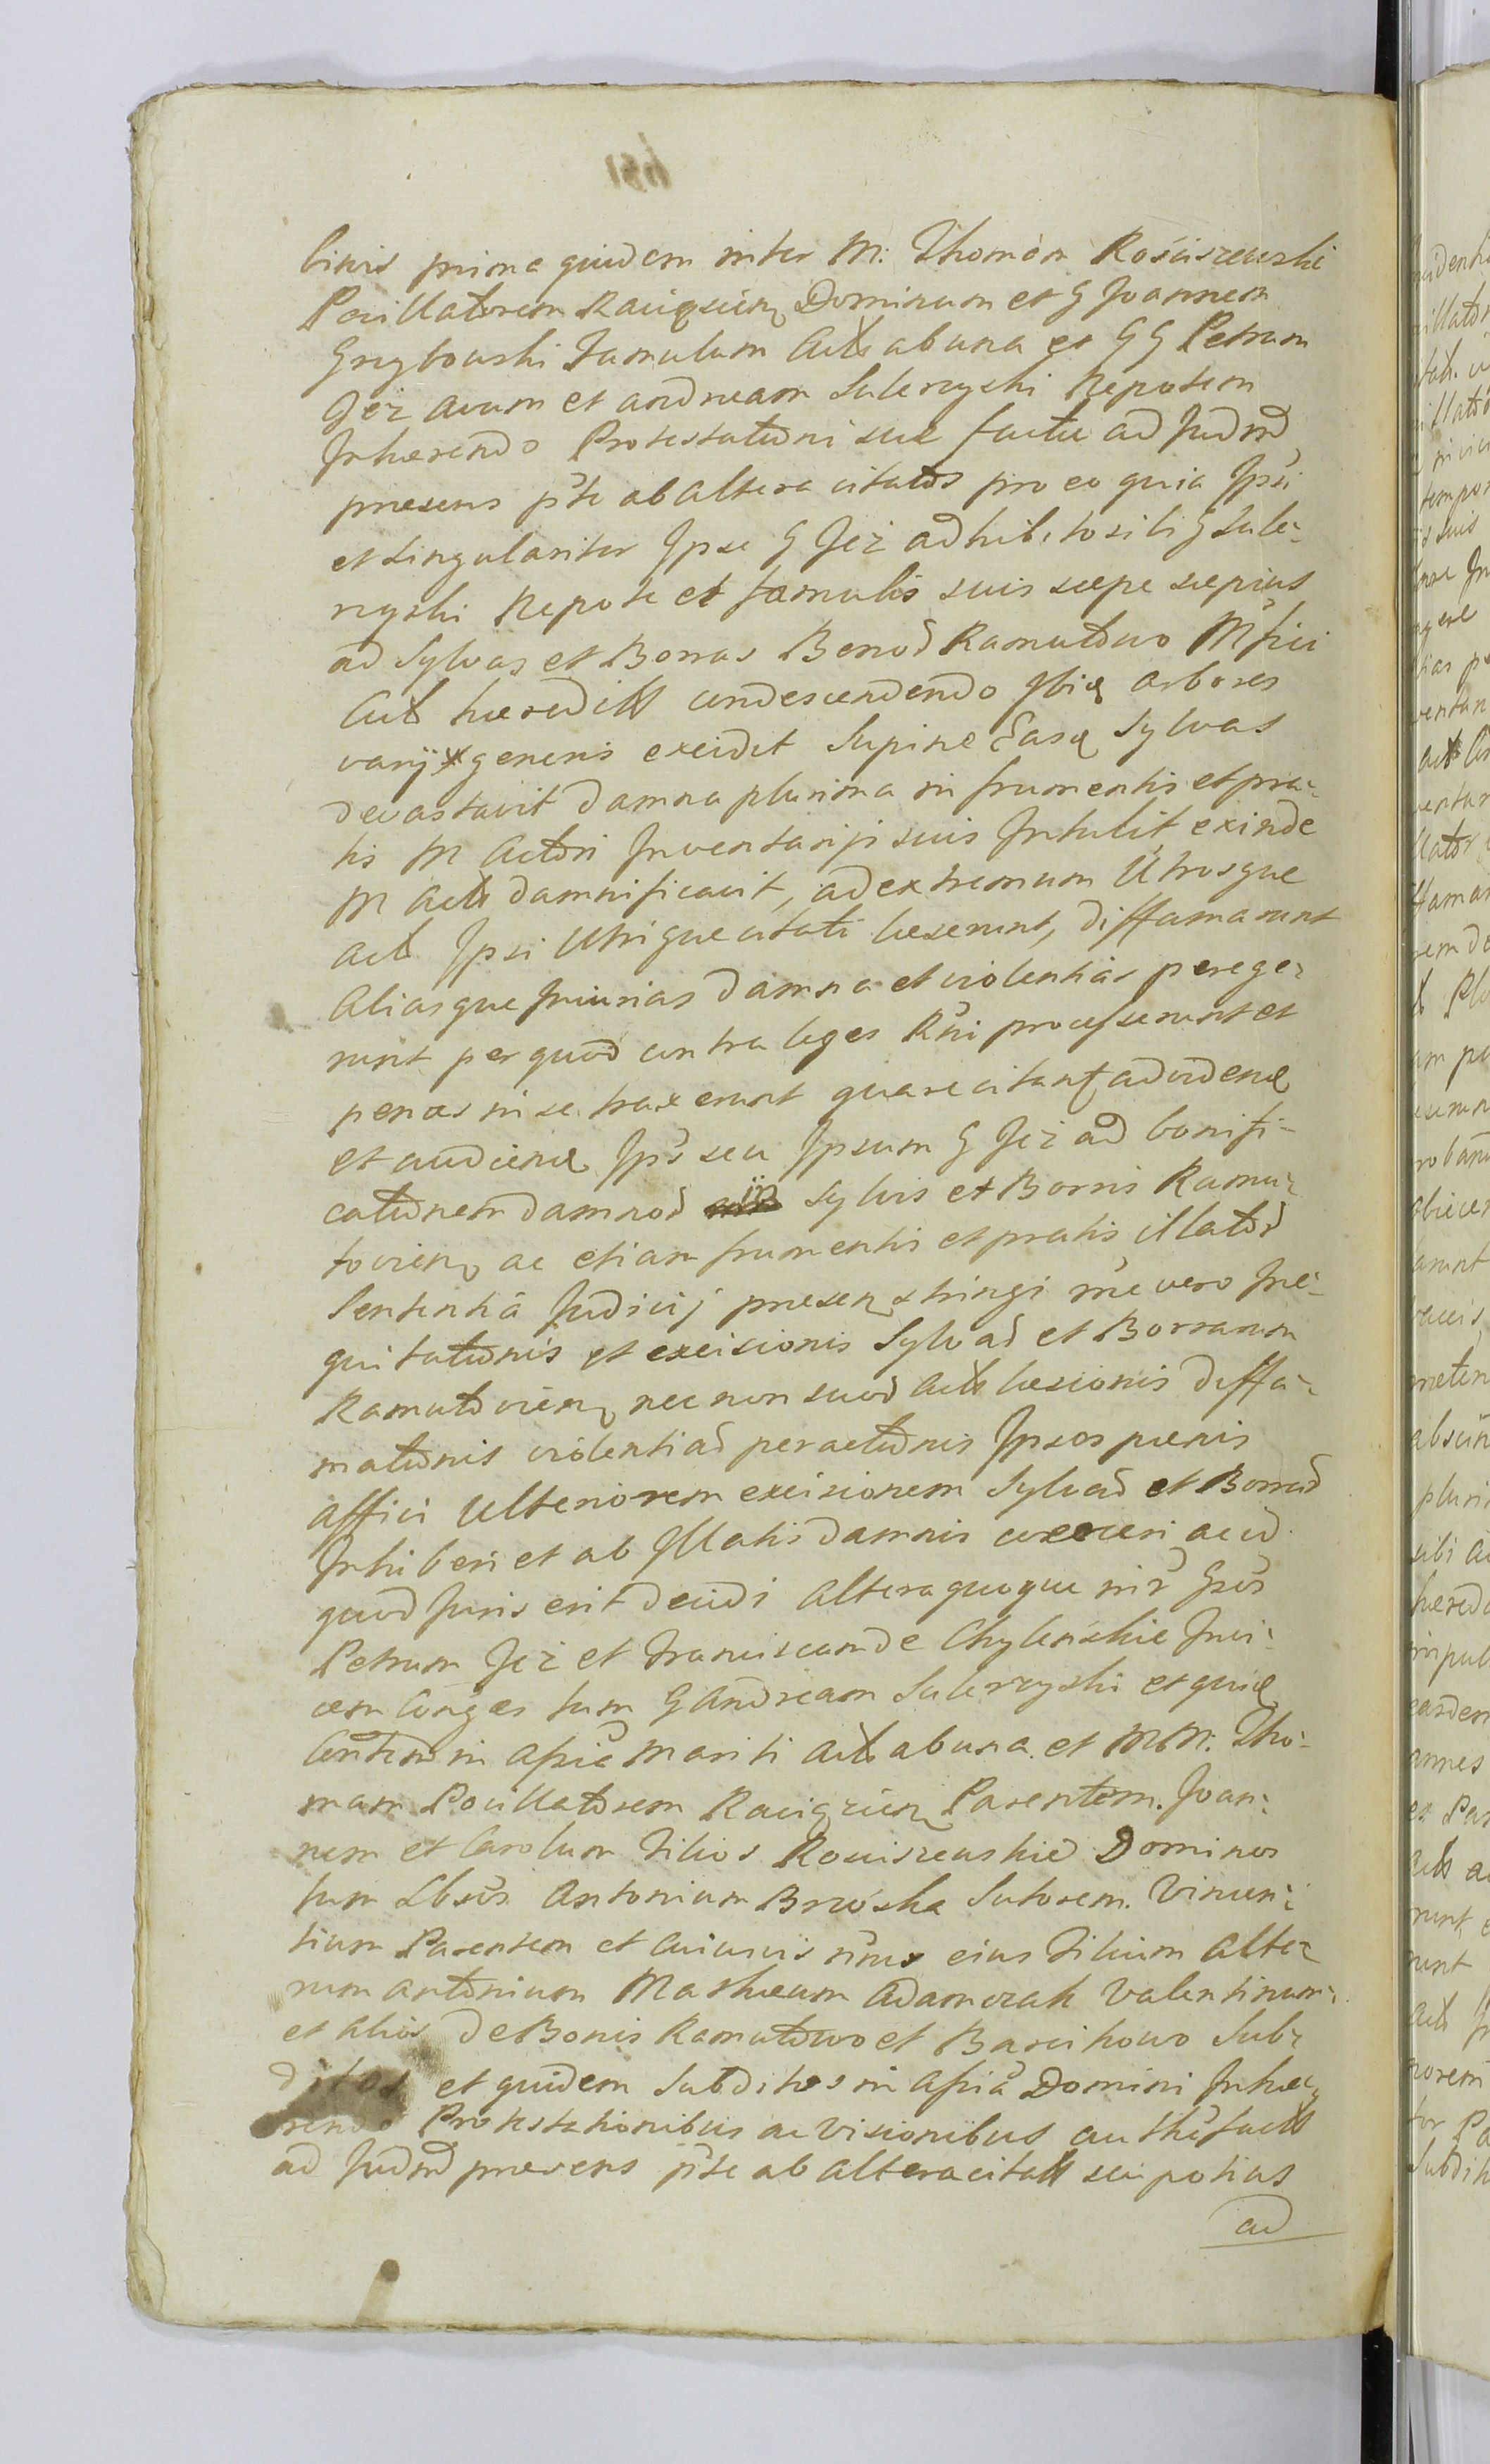 binis prima quidem inter M: Thomam Rościszewski
Pocillatorem Raciązień Dominum et G Joannem
Grzybowski Famulum Acts ab una et GG Petrum
Jeż avum et Andream Sulerzyski Nepotem
Inhærendo Protestationi suæ factæ ad Judm
præsens pte ab altera citatos pro eo quia Ipsi
et singulariter Ipse G Jeż adhibito sibi G Sule-
rzyski Nepote et famulis suis sæpe sæpius
ad Sylvas et Borras Bonoꝝ Ramutowo Mfici
Act hæredits condescendendo Ibiq arbores
varij generis excidit Supine Easq Sylvas
devastavit damna plurima in frumentis et pra-
tis M Actori Inventarijs suis Intulit, exinde
M Acts damnificavit, ad extremum Utrosque
Act Ipsi Utrique citati læserunt, diffamarunt
aliasque Iniurias damna et violentias perege-
runt per quod contra leges Rni processerunt et
penas in se traxerunt quare citant ad videnď
et audienď Ips seu Ipsum G Jeż ad bonifi-
cationem damnoꝝ iis Sylvis et Borris Ramu-
tovień ac etiam frumentis et pratis illatoꝝ
Sententiâ Judicij præseń stringi rne vero Ine-
quitationis et excisionis Sylvaꝝ et Borrarum
Ramutovień nec non suoꝝ Acts læsionis diffa-
mationis violentiaꝝ peractionis Ipsos pænis
affici Ulteriorem excisionem Sylvaꝝ et Borraꝝ
Inhiberi et ab Illatis damnis coerceri ac id
quod Juris erit decidi Altera quoque intr Gsos
Petrum Jeż et Franciscam de Chylińskie Invi-
cem Conges tum G Andream Sulerzyski et quidē
Contem in assia mariti Acts ab una et MM: Tho-
mam Pocillatorem Raciązień Parentem. Joan-
nem et Carolum Filios Rościszewskie Dominos
tum Lbsos Antonium Brzóska Sutorem. Vincen-
tium Parentem et cuiusvis nnis eius Filium alte-
rum Antonium Mathæum Adamczak Valentinum
et alios de Bonis Ramutowo et Barcikowo Sub-
ditos et quidem Subditos in assia Domini Inhæ-
rendo Protestationibus ac Visionibus authe facts
ad Judm præsens pte ab altera citats seu potius
ad